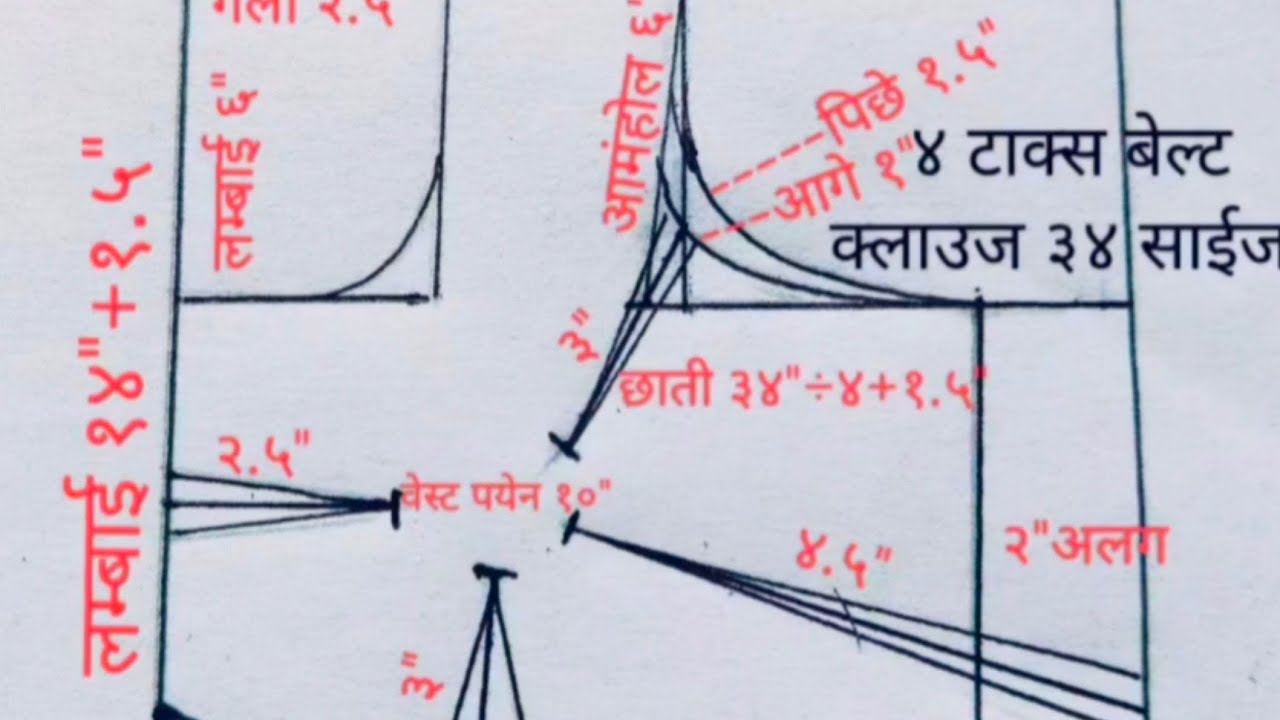 गला २.५"
लम्बाई ६"
आमंहोल ६"
पिछे १.५"
आगे १"
४ टाक्स बेल्ट
क्लाउज ३४ साईज
लम्बाई १४"+१.५"
३"
छाती ३४"÷४+१.५"
२.५"
वेस्ट पयेन १०"
४.५"
२"अलग
३"